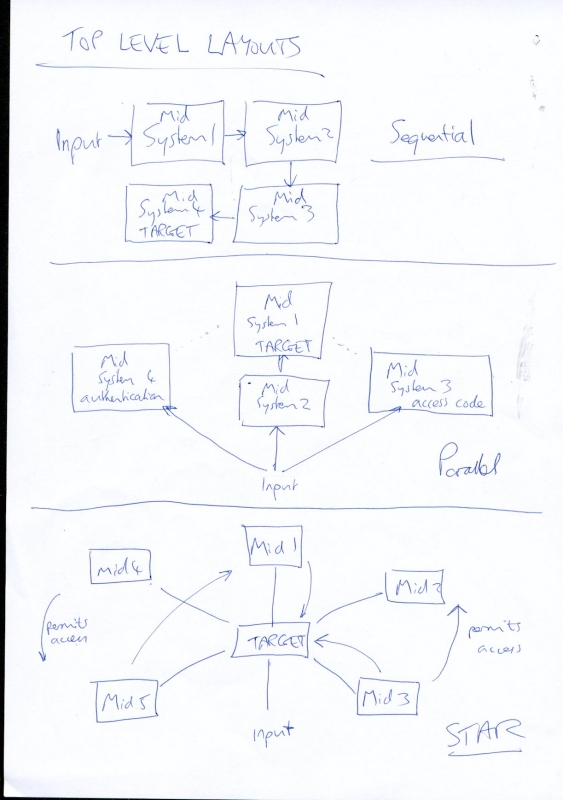 TOP LEVEL LAYOUTS
Input
Mid
System 1
Mid
System 2
Sequential
Mid
System 4
TARGET
Mid
System 3
Mid
System 1
TARGET
Mid
System 4
authentication
Mid
System 2
Mid
System 3
access code
Input
Parallel
Mid 1
Mid 4
Mid 2
permits
access
TARGET
permits
access
Mid 5
Mid 3
Input
STAR